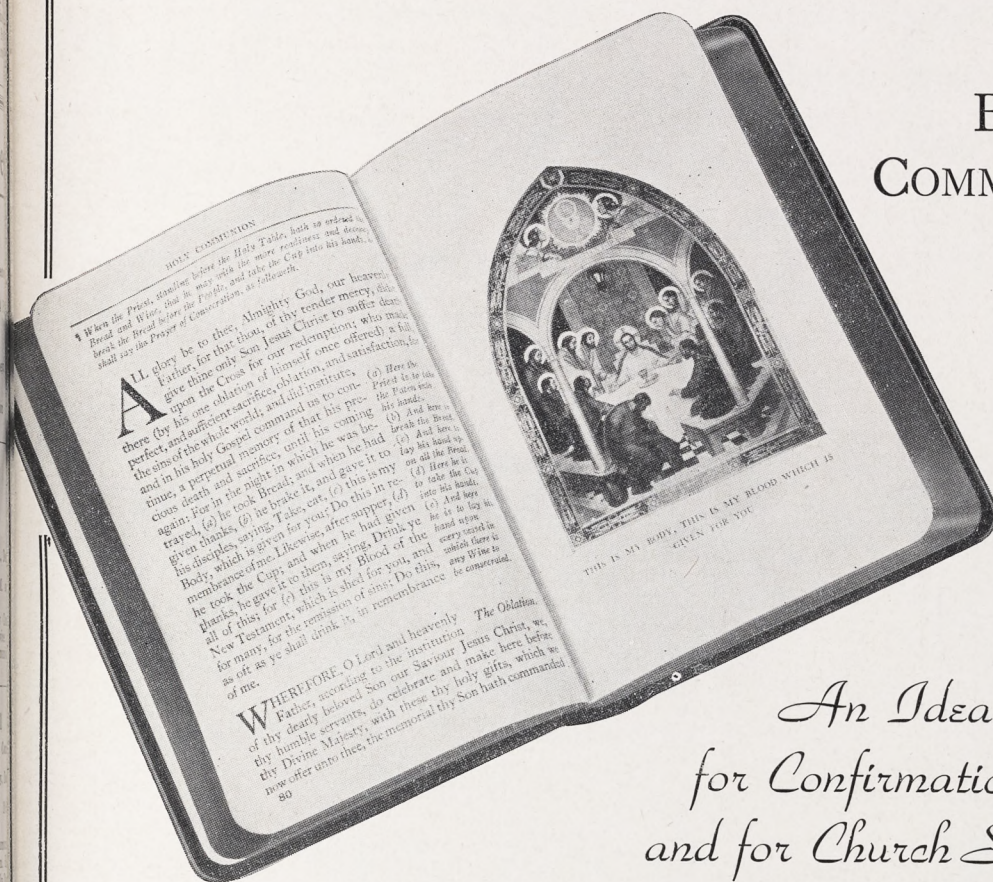 HOLY COMMUNION
¶ When the Priest, standing before the Holy Table, hath so ordered the
Bread and Wine, that he may with the more readiness and decency
break the Bread before the People, and take the Cup into his hands, he
shall say the Prayer of Consecration, as followeth.
ALL glory be to thee, Almighty God, our heavenly
Father, for that thou, of thy tender mercy, didst
give thine only Son Jesus Christ to suffer death
upon the Cross for our redemption; who made
there (by his one oblation of himself once offered) a full,
perfect, and sufficient sacrifice, oblation, and satisfaction, for
the sins of the whole world; and did institute,
and in his holy Gospel command us to con-
tinue, a perpetual memory of that his pre-
cious death and sacrifice, until his coming
again: For in the night in which he was be-
trayed, (a) he took Bread; and when he had
given thanks, (b) he brake it, and gave it to
his disciples, saying, Take, eat, (c) this is my
Body, which is given for you; Do this in re-
membrance of me. Likewise, after supper, (d)
he took the Cup; and when he had given
thanks, he gave it to them, saying, Drink ye
all of this; for (e) this is my Blood of the
New Testament, which is shed for you, and
for many, for the remission of sins; Do this,
as oft as ye shall drink it, in remembrance
of me.
(a) Here the
Priest is to take
the Paten into
his hands.
(b) And here to
break the Bread.
(c) And here to
lay his hand up-
on all the Bread.
(d) Here he is
to take the Cup
into his hands.
(e) And here
he is to lay his
hand upon
every vessel in
which there is
any Wine to
be consecrated.
The Oblation.
WHEREFORE, O Lord and heavenly
Father, according to the institution
of thy dearly beloved Son our Saviour Jesus Christ, we,
thy humble servants, do celebrate and make here before
thy Divine Majesty, with these thy holy gifts, which we
now offer unto thee, the memorial thy Son hath commanded
80
THIS IS MY BODY, THIS IS MY BLOOD WHICH IS
GIVEN FOR YOU
COMM
An Idea
for Confirmatio
and for Church S